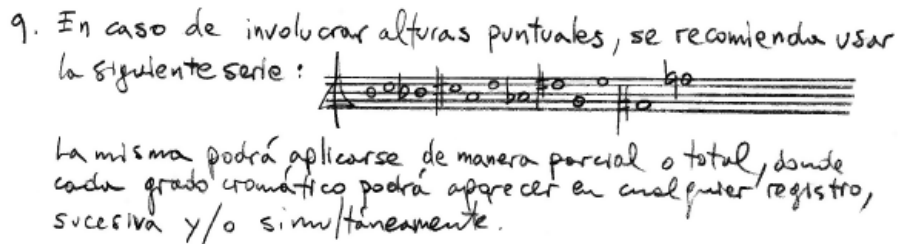 9. En caso de involucrar alturas puntuales, se recomienda usar
la siguiente serie:
La misma podrá aplicarse de manera parcial o total, donde
cada grado cromático podrá aparecer en cualquier registro,
sucesiva y/o simultáneamente.